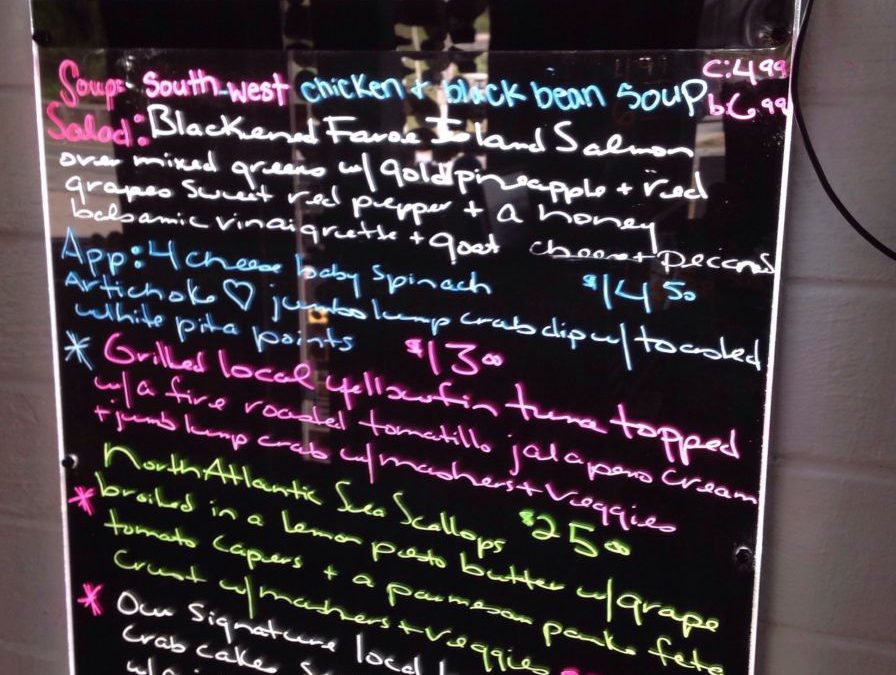 Soup: South-west chicken + black bean soup c:4.99
b:6.99
Salad: Blackened Faroe Island Salmon
over mixed greens w/ gold pineapple + red
grapes sweet red pepper + a honey
balsamic vinaigrette + goat cheese + pecans
$14 50
App: 4 cheese baby spinach
Artichoke ♡ jumbo lump crab dip w/ toasted
white pita points $13 00
* Grilled local yellowfin tuna topped
w/ a fire roasted tomatillo jalapeno cream
+ jumb lump crab w/ mashers + veggies
$25 00
* North Atlantic Sea Scallops
broiled in a lemon pesto butter w/ grape
tomato capers + a parmesan panko feta
crust w/ mashers + veggies
* Our signature local
crab cakes